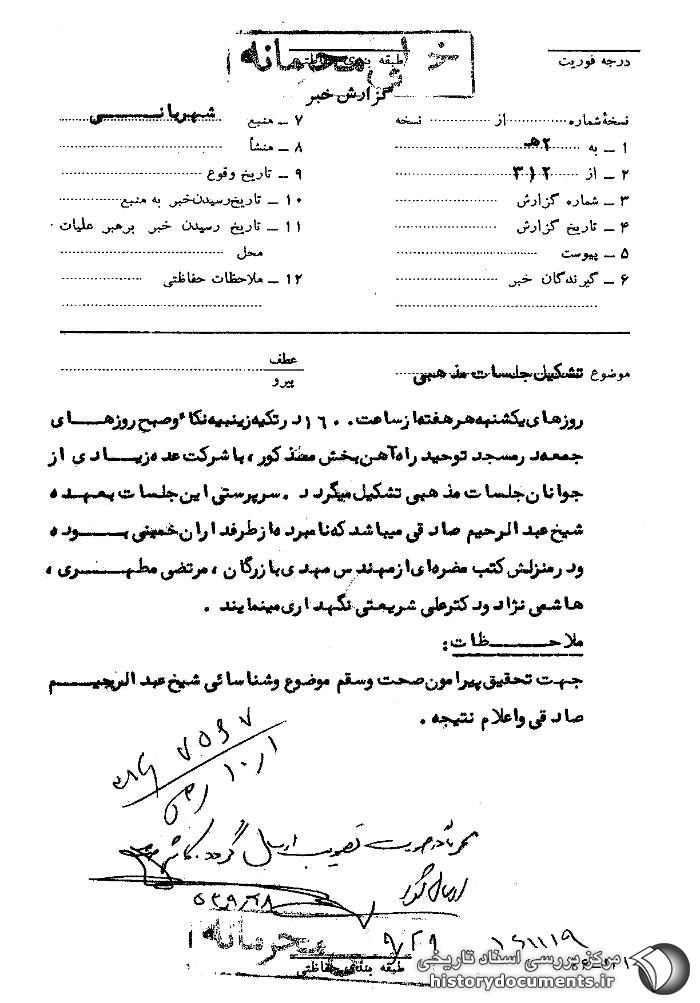 درجه فوریت
طبقه بندی حفاظتی
خیلی محرمانه
گزارش خبر
نسخهٔ شماره ............ از ............ نسخه
۱ ــ به ۲ هـ
۲ ــ از ۳۱۲
۳ ــ شماره گزارش
۴ ــ تاریخ گزارش
۵ ــ پیوست
۶ ــ گیرندگان خبر
۷ ــ منبع شهربانــــی
۸ ــ منشأ
۹ ــ تاریخ وقوع
۱۰ ــ تاریخ رسیدن خبر به منبع
۱۱ ــ تاریخ رسیدن خبر برهبر عملیات
محل
۱۲ ــ ملاحظات حفاظتی
موضوع تشکیل جلسات مذهبی
عطف
پیرو
روزهای یکشنبه هر هفته از ساعت ۱۶۰۰ در تکیه زینبیه نکاء وصبح روزهــای
جمعه در مسجد توحید راه آهن بخش مذکور ، با شرکت عده زیــادی از
جوانان جلسات مذهبی تشکیل میگردد . سرپرستی این جلسات بعهــده
شیخ عبدالرحیم صادقی میباشد که نامبرده از طرفداران خمینی بــوده
ودر منزلش کتب مضره ای از مهندس مهدی بازرگان ، مرتضی مطهــری ،
هاشمی نژاد ودکتر علی شریعتی نگهداری مینمایند .
ملاحــظات :
جهت تحقیق پیرامون صحت وسقم موضوع وشناسائی شیخ عبدالرحیــم
صادقی واعلام نتیجه .
ارسال گردد
۹/۲۹
محرمانه
طبقه بندی حفاظتی
مرکز بررسی اسناد تاریخی
historydocuments.ir